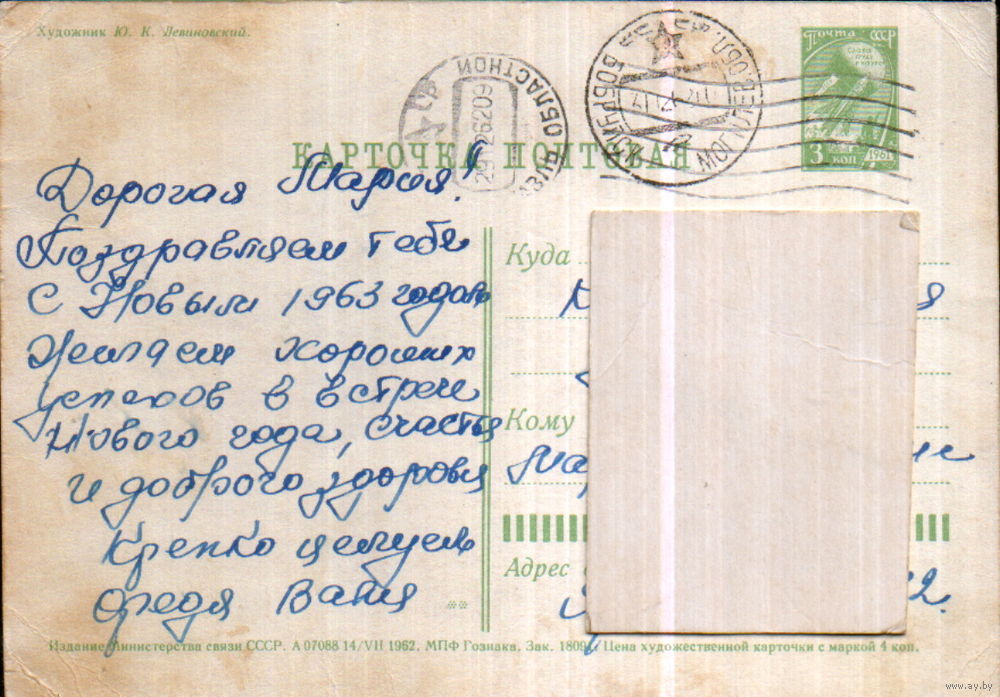 Художник Ю. К. Левиновский.
ПОЧТА СССР
3 коп
1961
БОБРУЙСК МОГИЛЕВ. ОБЛ.
ОБЛАСТНОЙ
29126209
КАРТОЧКА ПОЧТОВАЯ
Дорогая Мария!
Поздравляем тебя
с Новым 1963 годом
Желаем хороших
успехов в встрече
Нового года, счастья
и доброго здоровья
Крепко целуем
Федя Валя
Куда
Кому
Адрес
2.
Издание Министерства связи СССР. А 07088 14/VII 1962. МПФ Гознака. Зак. 1809 Цена художественной карточки с маркой 4 коп.
www.ay.by